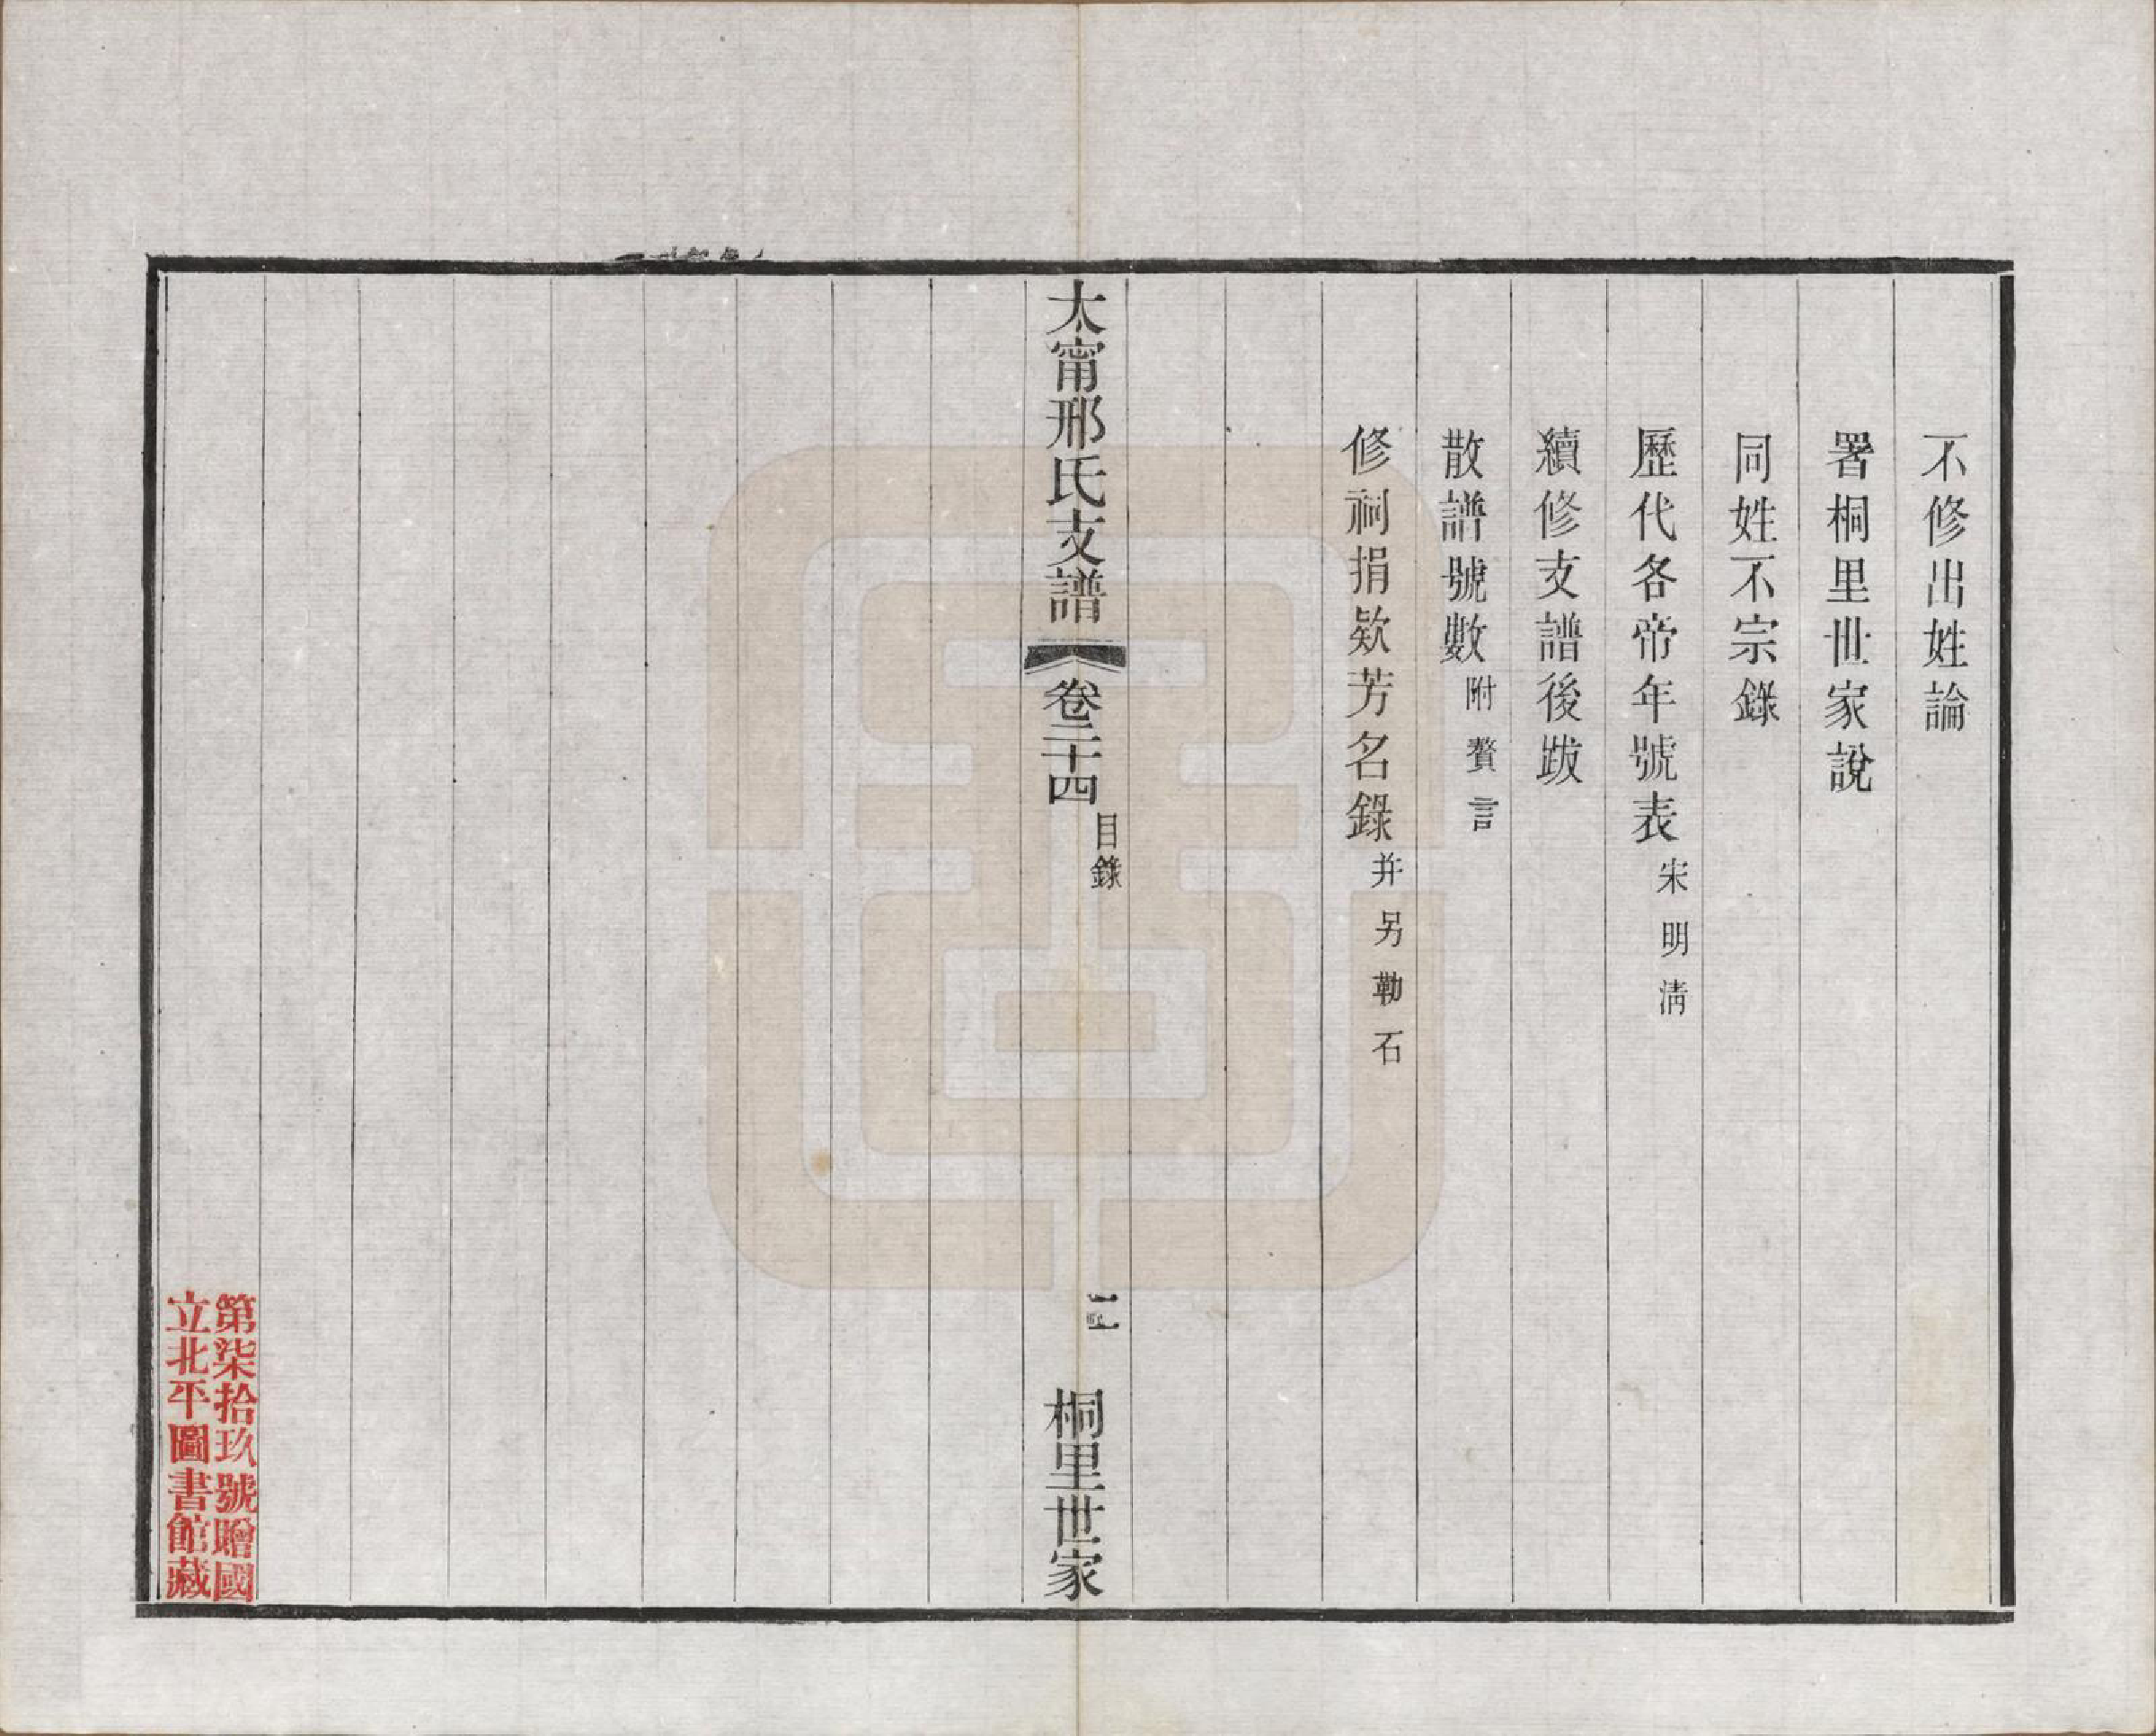 不修出姓論
署桐里世家說
同姓不宗錄
歷代各帝年號表宋明清
續修支譜後跋
散譜號數附贅言
修祠捐欵芳名錄并另勒石
大甯邢氏支譜
卷二十四
目錄
桐里世家
第柒拾玖號贈國
立北平圖書館藏